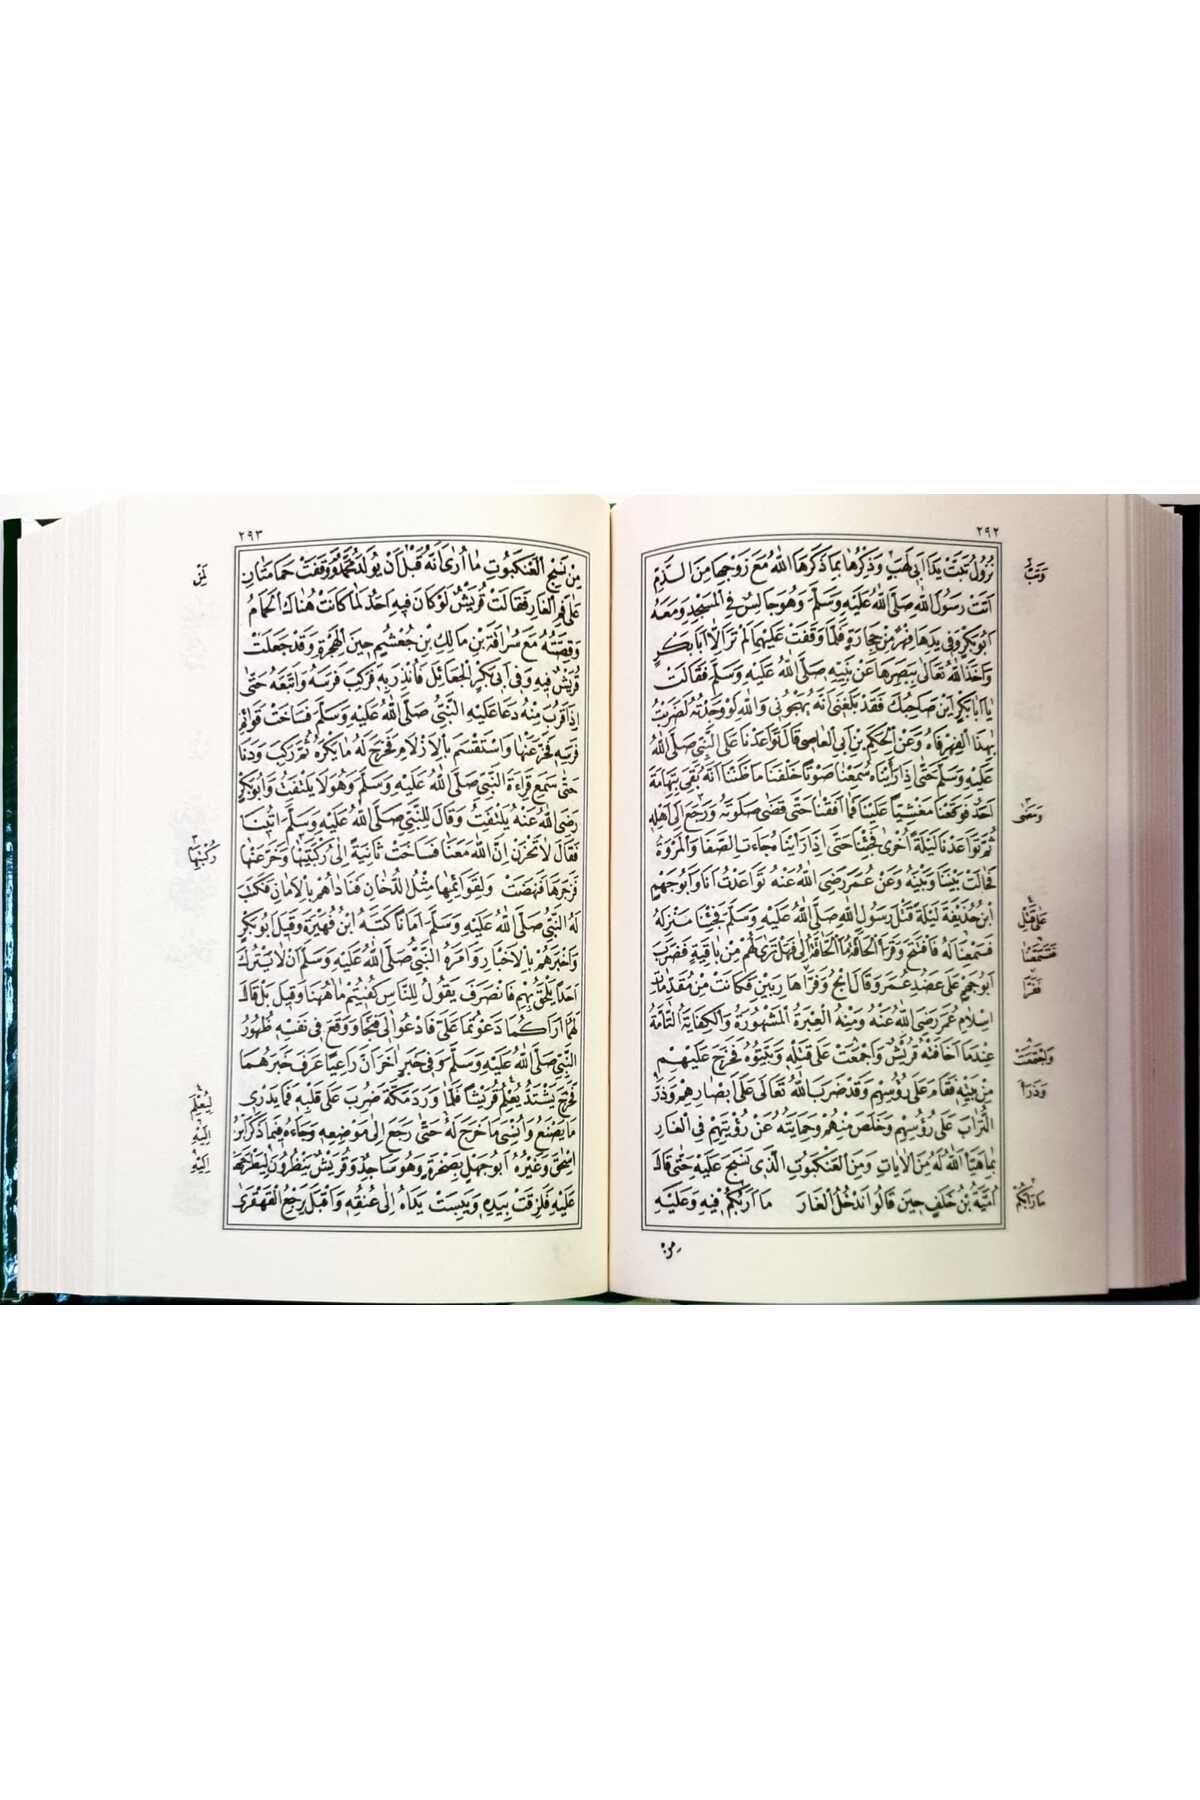 ٢٩٢
نُزُولُ تَبَّتْ يَدَا اَبِى لَهَبٍ وَذِكْرُهَا بِمَا ذَكَرَهَا اللّٰهُ مَعَ زَوْجِهَا مِنَ الذَّمِّ
اَتَتْ رَسُولَ اللّٰهِ صَلَّى اللّٰهُ عَلَيْهِ وَسَلَّمَ وَهُوَ جَالِسٌ فِى الْمَسْجِدِ وَمَعَهُ
اَبُوبَكْرٍ وَفِى يَدِهَا فِهْرٌ مِنْ حِجَارَةٍ فَلَمَّا وَقَفَتْ عَلَيْهِمَا لَمْ تَرَ اِلَّا اَبَا بَكْرٍ
وَاَخَذَ اللّٰهُ تَعَالٰى بِبَصَرِهَا عَنْ نَبِيِّهِ صَلَّى اللّٰهُ عَلَيْهِ وَسَلَّمَ فَقَالَتْ
يَا اَبَا بَكْرٍ اَيْنَ صَاحِبُكَ فَقَدْ بَلَغَنِى اَنَّهُ يَهْجُونِى وَاللّٰهِ لَوْ وَجَدْتُهُ لَضَرَبْتُ
بِهٰذَا الْفِهْرِ فَاهُ وَعَنِ الْحَكَمِ بْنِ اَبِى الْعَاصِى قَالَ تَوَاعَدْنَا عَلَى النَّبِىِّ صَلَّى اللّٰهُ
عَلَيْهِ وَسَلَّمَ حَتّٰى اِذَا رَأَيْنَاهُ سَمِعْنَا صَوْتًا خَلْفَنَا مَا ظَنَنَّا اَنَّهُ بَقِىَ بِتِهَامَةَ
اَحَدٌ فَوَقَعْنَا مَغْشِيًّا عَلَيْنَا فَمَا اَفَقْنَا حَتّٰى قَضٰى صَلٰوتَهُ وَرَجَعَ اِلٰى اَهْلِهِ
ثُمَّ تَوَاعَدْنَا لَيْلَةً اُخْرٰى فَجِئْنَا حَتّٰى اِذَا رَاَيْنَاهُ جَاءَتِ الصَّفَا وَالْمَرْوَةُ
فَحَالَتْ بَيْنَنَا وَبَيْنَهُ وَعَنْ عُمَرَ رَضِىَ اللّٰهُ عَنْهُ تَوَاعَدْتُ اَنَا وَاَبُوجَهْمِ
ابْنُ حُذَيْفَةَ لَيْلَةً قَتْلَ رَسُولِ اللّٰهِ صَلَّى اللّٰهُ عَلَيْهِ وَسَلَّمَ فَجِئْنَا مَنْزِلَهُ
فَسَمِعْنَا لَهُ فَافْتَتَحَ وَقَرَأَ الْحَاقَّةُ مَا الْحَاقَّةُ اِلٰى فَهَلْ تَرٰى لَهُمْ مِنْ بَاقِيَةٍ فَضَرَبَ
اَبُو جَهْمٍ عَلٰى عَضُدِ عُمَرَ وَقَالَ انْجُ وَفَرَّا هَارِبَيْنِ فَكَانَتْ مِنْ مُقَدِّمَاتِ
اِسْلَامِ عُمَرَ رَضِىَ اللّٰهُ عَنْهُ وَمِنْهُ الْعِبْرَةُ الْمَشْهُورَةُ وَالْكِفَايَةُ التَّامَّةُ
عِنْدَمَا اَخَافَتْهُ قُرَيْشٌ وَاجْمَعَتْ عَلٰى قَتْلِهِ وَبَيَّتُوهُ فَخَرَجَ عَلَيْهِمْ
مِنْ بَيْتِهِ فَقَامَ عَلٰى رُؤُسِهِمْ وَقَدْ ضَرَبَ اللّٰهُ تَعَالٰى عَلٰى اَبْصَارِهِمْ وَذَرَّ
التُّرَابَ عَلٰى رُؤُسِهِمْ وَخَلَصَ مِنْهُمْ وَحِمَايَتُهُ عَنْ رُؤْيَتِهِمْ فِى الْغَارِ
بِمَا هَيَّاَ اللّٰهُ لَهُ مِنَ الْاٰيَاتِ وَمِنَ الْعَنْكَبُوتِ الَّذِى نَسَجَ عَلَيْهِ حَتّٰى قَالَ
اُمَيَّةُ بْنُ خَلَفٍ حِينَ قَالُوا نَدْخُلُ الْغَارَ مَا اَرَبُكُمْ فِيهِ وَعَلَيْهِ
مِنْ
وَتَبَّ
وَمَضٰى
عَلٰى قَتْلِ
فَتَسَمَّعْنَا
فَقَرَأَ
وَاجْتَمَعَتْ
وَذَرَأَ
مَا رَابَكُمْ
٢٩٣
مِنْ نَسْجِ الْعَنْكَبُوتِ مَا اُرٰى اَنَّهُ قَبْلَ اَنْ يُولَدَ مُحَمَّدٌ وَوَقَفَتْ حَمَامَتَانِ
عَلٰى فَمِ الْغَارِ فَقَالَتْ قُرَيْشٌ لَوْ كَانَ فِيهِ اَحَدٌ لَمَا كَانَتْ هُنَاكَ الْحَمَامُ
وَقِصَّتُهُ مَعَ سُرَاقَةَ بْنِ مَالِكِ بْنِ جُعْشُمٍ حِينَ الْهِجْرَةِ وَقَدْ جَعَلَتْ
قُرَيْشٌ فِيهِ وَفِى اَبِى بَكْرٍ الْجَعَائِلَ فَاُنْذِرَ بِهِ فَرَكِبَ فَرَسَهُ وَاتَّبَعَهُ حَتّٰى
اِذَا قَرُبَ مِنْهُ دَعَا عَلَيْهِ النَّبِىُّ صَلَّى اللّٰهُ عَلَيْهِ وَسَلَّمَ فَسَاخَتْ قَوَائِمُ
فَرَسِهِ فَخَرَّ عَنْهَا وَاسْتَقْسَمَ بِالْاَزْلَامِ فَخَرَجَ لَهُ مَا يَكْرَهُ ثُمَّ رَكِبَ وَدَنَا
حَتّٰى سَمِعَ قِرَاءَةَ النَّبِىِّ صَلَّى اللّٰهُ عَلَيْهِ وَسَلَّمَ وَهُوَ لَا يَلْتَفِتُ وَاَبُوبَكْرٍ
رَضِىَ اللّٰهُ عَنْهُ يَلْتَفِتُ وَقَالَ لِلنَّبِىِّ صَلَّى اللّٰهُ عَلَيْهِ وَسَلَّمَ اُتِينَا
فَقَالَ لَا تَحْزَنْ اِنَّ اللّٰهَ مَعَنَا فَسَاخَتْ ثَانِيَةً اِلٰى رُكْبَتِهَا وَخَرَّ عَنْهَا
فَزَجَرَهَا فَنَهَضَتْ وَلِقَوَائِمِهَا مِثْلُ الدُّخَانِ فَنَادَاهُمْ بِالْاَمَانِ فَكَتَبَ
لَهُ النَّبِىُّ صَلَّى اللّٰهُ عَلَيْهِ وَسَلَّمَ اَمَانًا كَتَبَهُ ابْنُ فُهَيْرَةَ وَقِيلَ اَبُوبَكْرٍ
وَاَخْبَرَهُمْ بِالْاَخْبَارِ وَاَمَرَهُ النَّبِىُّ صَلَّى اللّٰهُ عَلَيْهِ وَسَلَّمَ اَنْ لَا يَتْرُكَ
اَحَدًا يَلْحَقُ بِهِمْ فَانْصَرَفَ يَقُولُ لِلنَّاسِ كُفِيتُمْ مَا هٰهُنَا وَقِيلَ بَلْ قَالَ
لَهُمَا اَرَاكُمَا دَعَوْتُمَا عَلَىَّ فَادْعُوَا لِى فَنَجَا وَوَقَعَ فِى نَفْسِهِ ظُهُورُ
النَّبِىِّ صَلَّى اللّٰهُ عَلَيْهِ وَسَلَّمَ وَفِى خَبَرٍ اٰخَرَ اَنَّ رَاعِيًا عَرَفَ خَبَرَهُمَا
فَخَرَجَ يَشْتَدُّ يُعْلِمُ قُرَيْشًا فَلَمَّا وَرَدَ مَكَّةَ ضُرِبَ عَلٰى قَلْبِهِ فَمَا يَدْرِى
مَا يَصْنَعُ وَاُنْسِىَ مَا خَرَجَ لَهُ حَتّٰى رَجَعَ اِلٰى مَوْضِعِهِ وَجَاءَهُ فِيمَا ذَكَرَ ابْنُ
اِسْحٰقَ وَغَيْرُهُ اَبُو جَهْلٍ بِصَخْرَةٍ وَهُوَ سَاجِدٌ وَقُرَيْشٌ يَنْظُرُونَ لِيَطْرَحَهَا
عَلَيْهِ فَلَزِقَتْ بِيَدِهِ وَيَبِسَتْ يَدَاهُ اِلٰى عُنُقِهِ وَاَقْبَلَ رَجَعَ الْقَهْقَرٰى
رُكْبَتَيْهَا
لِيُعْلِمَ
اِلَيْهِ
اِلَيْهِ